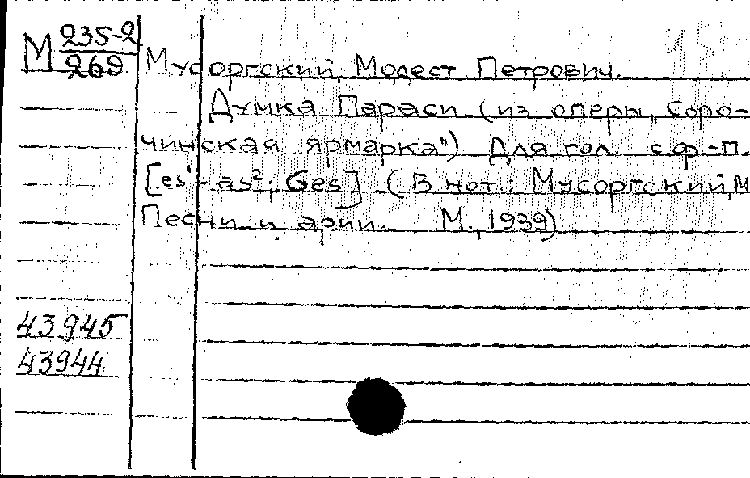 М 235-2
269
Мусоргский, Модест Петрович.
Думка Параси (из оперы „Соро-
чинская ярмарка") Для гол. с ф.-п.
[es¹-as²; Ges] (В нот.: Мусоргский, М
Песни и арии. М., 1939)
43945
43944